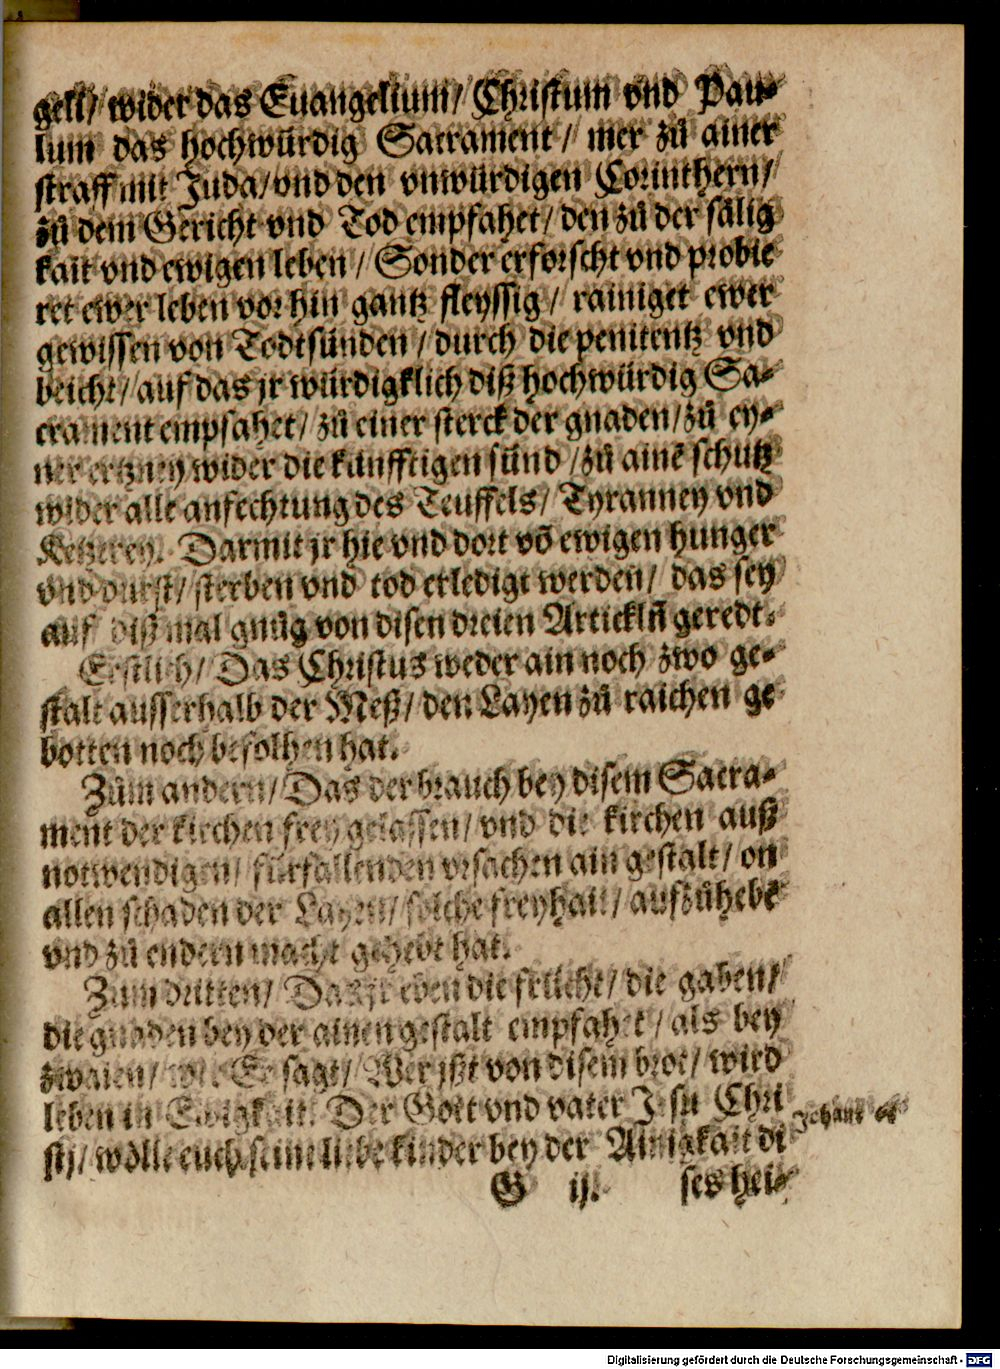 gell/ wider das Euangelium/ Christum vnd Pau-
lum das hochwürdig Sacrament/ mer zů ainer
straff mit Juda/ vnd den vnwürdigen Corinthern/
zů dem Gericht vnd Tod empfahet/ den zů der sälig
kait vnd ewigen leben/ Sonder erforscht vnd probie
ret ewer leben vor hin gantz fleyssig/ rainiget ewer
gewissen von Todtsünden/ durch die penitentz vnd
beicht/ auf das jr würdigklich diß hochwürdig Sa-
crament empfahet/ zů einer sterck der gnaden/ zů ey-
ner ertzney wider die künfftigen sünd/ zů ainē schutz
wider alle anfechtung des Teuffels/ Tyranney vnd
Ketzerey. Darmit jr hie vnd dort vō ewigen hunger
vnd durst/ sterben vnd tod erledigt werden/ das sey
auf diß mal gnůg von disen dreien Artickln̄ geredt.
Erstlich/ Das Christus weder ain noch zwo ge-
stalt ausserhalb der Meß/ den Layen zů raichen ge
botten noch befolhen hat.
Zům andern/ Das der brauch bey disem Sacra-
ment der kirchen frey gelassen/ vnd die kirchen auß
notwendigen/ fürfallenden vrsachen ain gestalt/ on
allen schaden der Layen/ solche freyhait/ aufzůhebē
vnd zů endern macht gehebt hat.
Zum dritten/ Das jr eben die früchť/ die gaben/
die gnaden bey der ainen gestalt empfahet/ als bey
zwaien/ wie Er sagt/ Wer jßt von disem brot/ wird
leben in Ewigkait. Der Gott vnd vater Jesu Chri
stj/ wölle euch seine liebe kinder bey der Ainigkait di
Johan̄ 6
G ij. ses hei-
Digitalisierung gefördert durch die Deutsche Forschungsgemeinschaft - DFG